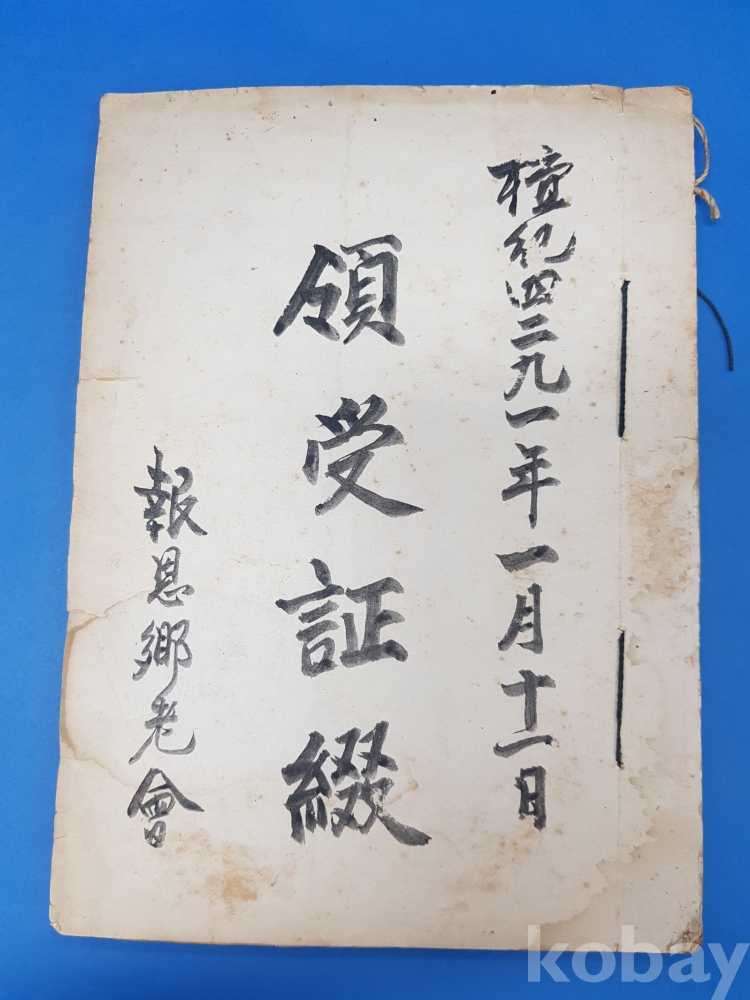 檀紀四二九一年一月十一日
領受証綴
報恩鄉老會
kobay